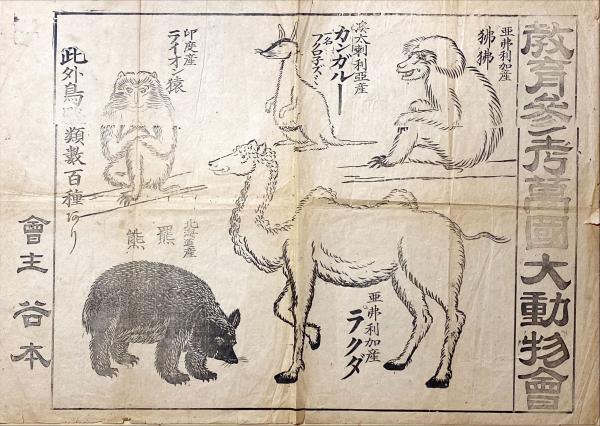 教育參考萬國大動物會
亜弗利加産
狒狒
濠太剌利亜産
カンガルー
一名フクロネズミ
印度産
ライオン猿
此外鳥獣類数百種あり
亜弗利加産
ラクダ
北海道産
羆
熊
會主 谷本